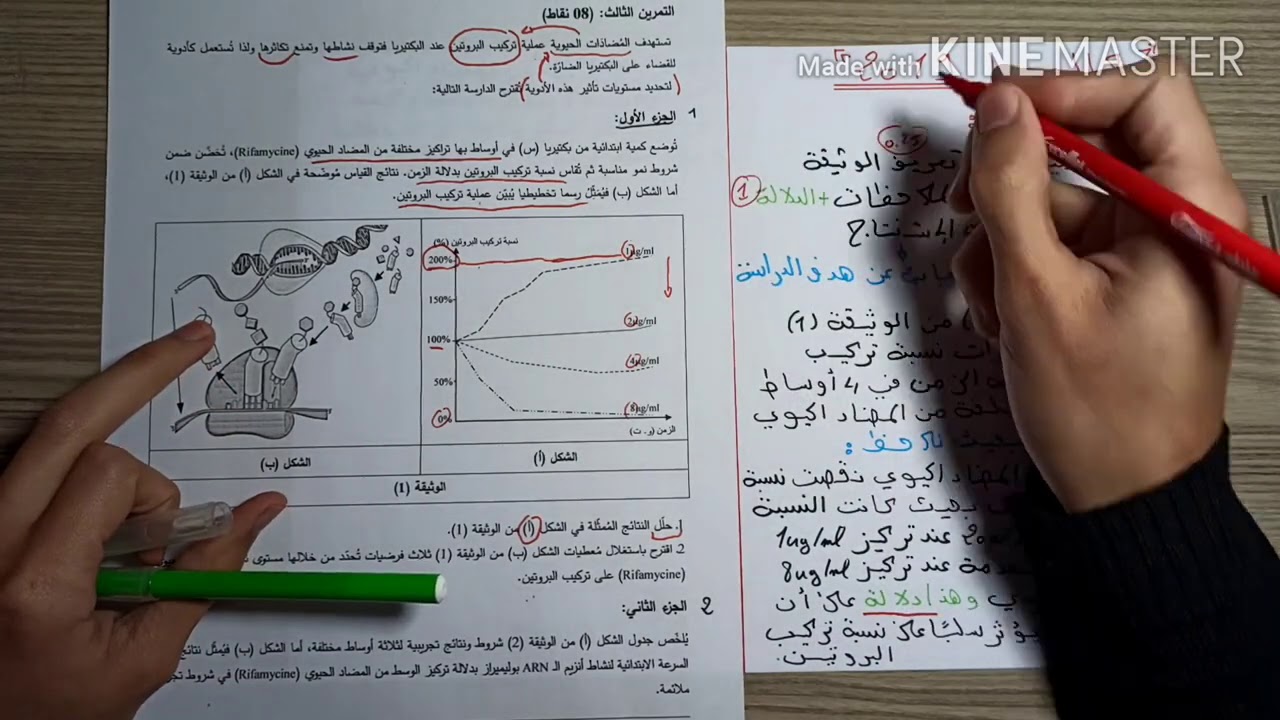 التمرين الثالث: (08 نقاط)
تستهدف المضادات الحيوية عملية تركيب البروتين عند البكتيريا فتوقف نشاطها وتمنع تكاثرها ولذا تُستعمل كأدوية
للقضاء على البكتيريا الضارّة.
لتحديد مستويات تأثير هذه الأدوية نقترح الدارسة التالية:
1 الجزء الأول:
تُوضع كمية ابتدائية من بكتيريا (س) في أوساط بها تراكيز مختلفة من المضاد الحيوي (Rifamycine)، تُحضّن ضمن
شروط نمو مناسبة ثم تُقاس نسبة تركيب البروتين بدلالة الزمن. نتائج القياس مُوضّحة في الشكل (أ) من الوثيقة (1)،
أما الشكل (ب) فيُمثّل رسما تخطيطيا يُبيّن عملية تركيب البروتين.
نسبة تركيب البروتين (%)
200%
150%
100%
50%
0%
1µg/ml
2µg/ml
4µg/ml
8µg/ml
الزمن (و. ت)
الشكل (أ)
الشكل (ب)
الوثيقة (1)
1. حلّل النتائج المُمثّلة في الشكل (أ) من الوثيقة (1).
2. اقترح باستغلال مُعطيات الشكل (ب) من الوثيقة (1) ثلاث فرضيات تُحدّد من خلالها مستوى
(Rifamycine) على تركيب البروتين.
2 الجزء الثاني:
يُلخّص جدول الشكل (أ) من الوثيقة (2) شروط ونتائج تجريبية لثلاثة أوساط مختلفة، أما الشكل (ب) فيُمثّل نتائج
السرعة الابتدائية لنشاط أنزيم الـ ARN بوليميراز بدلالة تركيز الوسط من المضاد الحيوي (Rifamycine) في شروط
ملائمة.
Made with KINEMASTER
0.25
تعريف الوثيقة
1 الملاحظات + الدلالة
الإستنتاج
عن هدف الدراسة
من الوثيقة (1)
نسبة تركيب
الزمن في 4 أوساط
من المضاد الحيوي
بحيث نلاحظ:
المضاد الحيوي نقصت نسبة
بحيث كانت النسبة
عند تركيز 1ug/ml
عند تركيز 8ug/ml
وهذا دلالة على أن
يؤثر سلبًا على نسبة تركيب
البروتين.